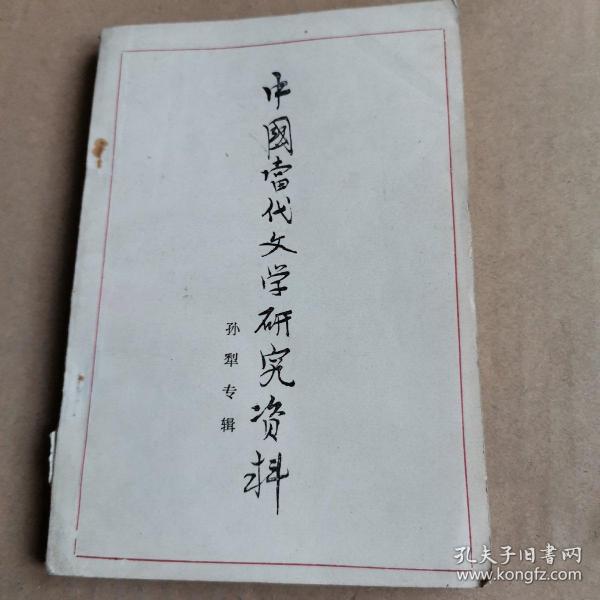 中國當代文学研究资料
孙犁专辑
孔夫子旧书网
www.kongfz.com